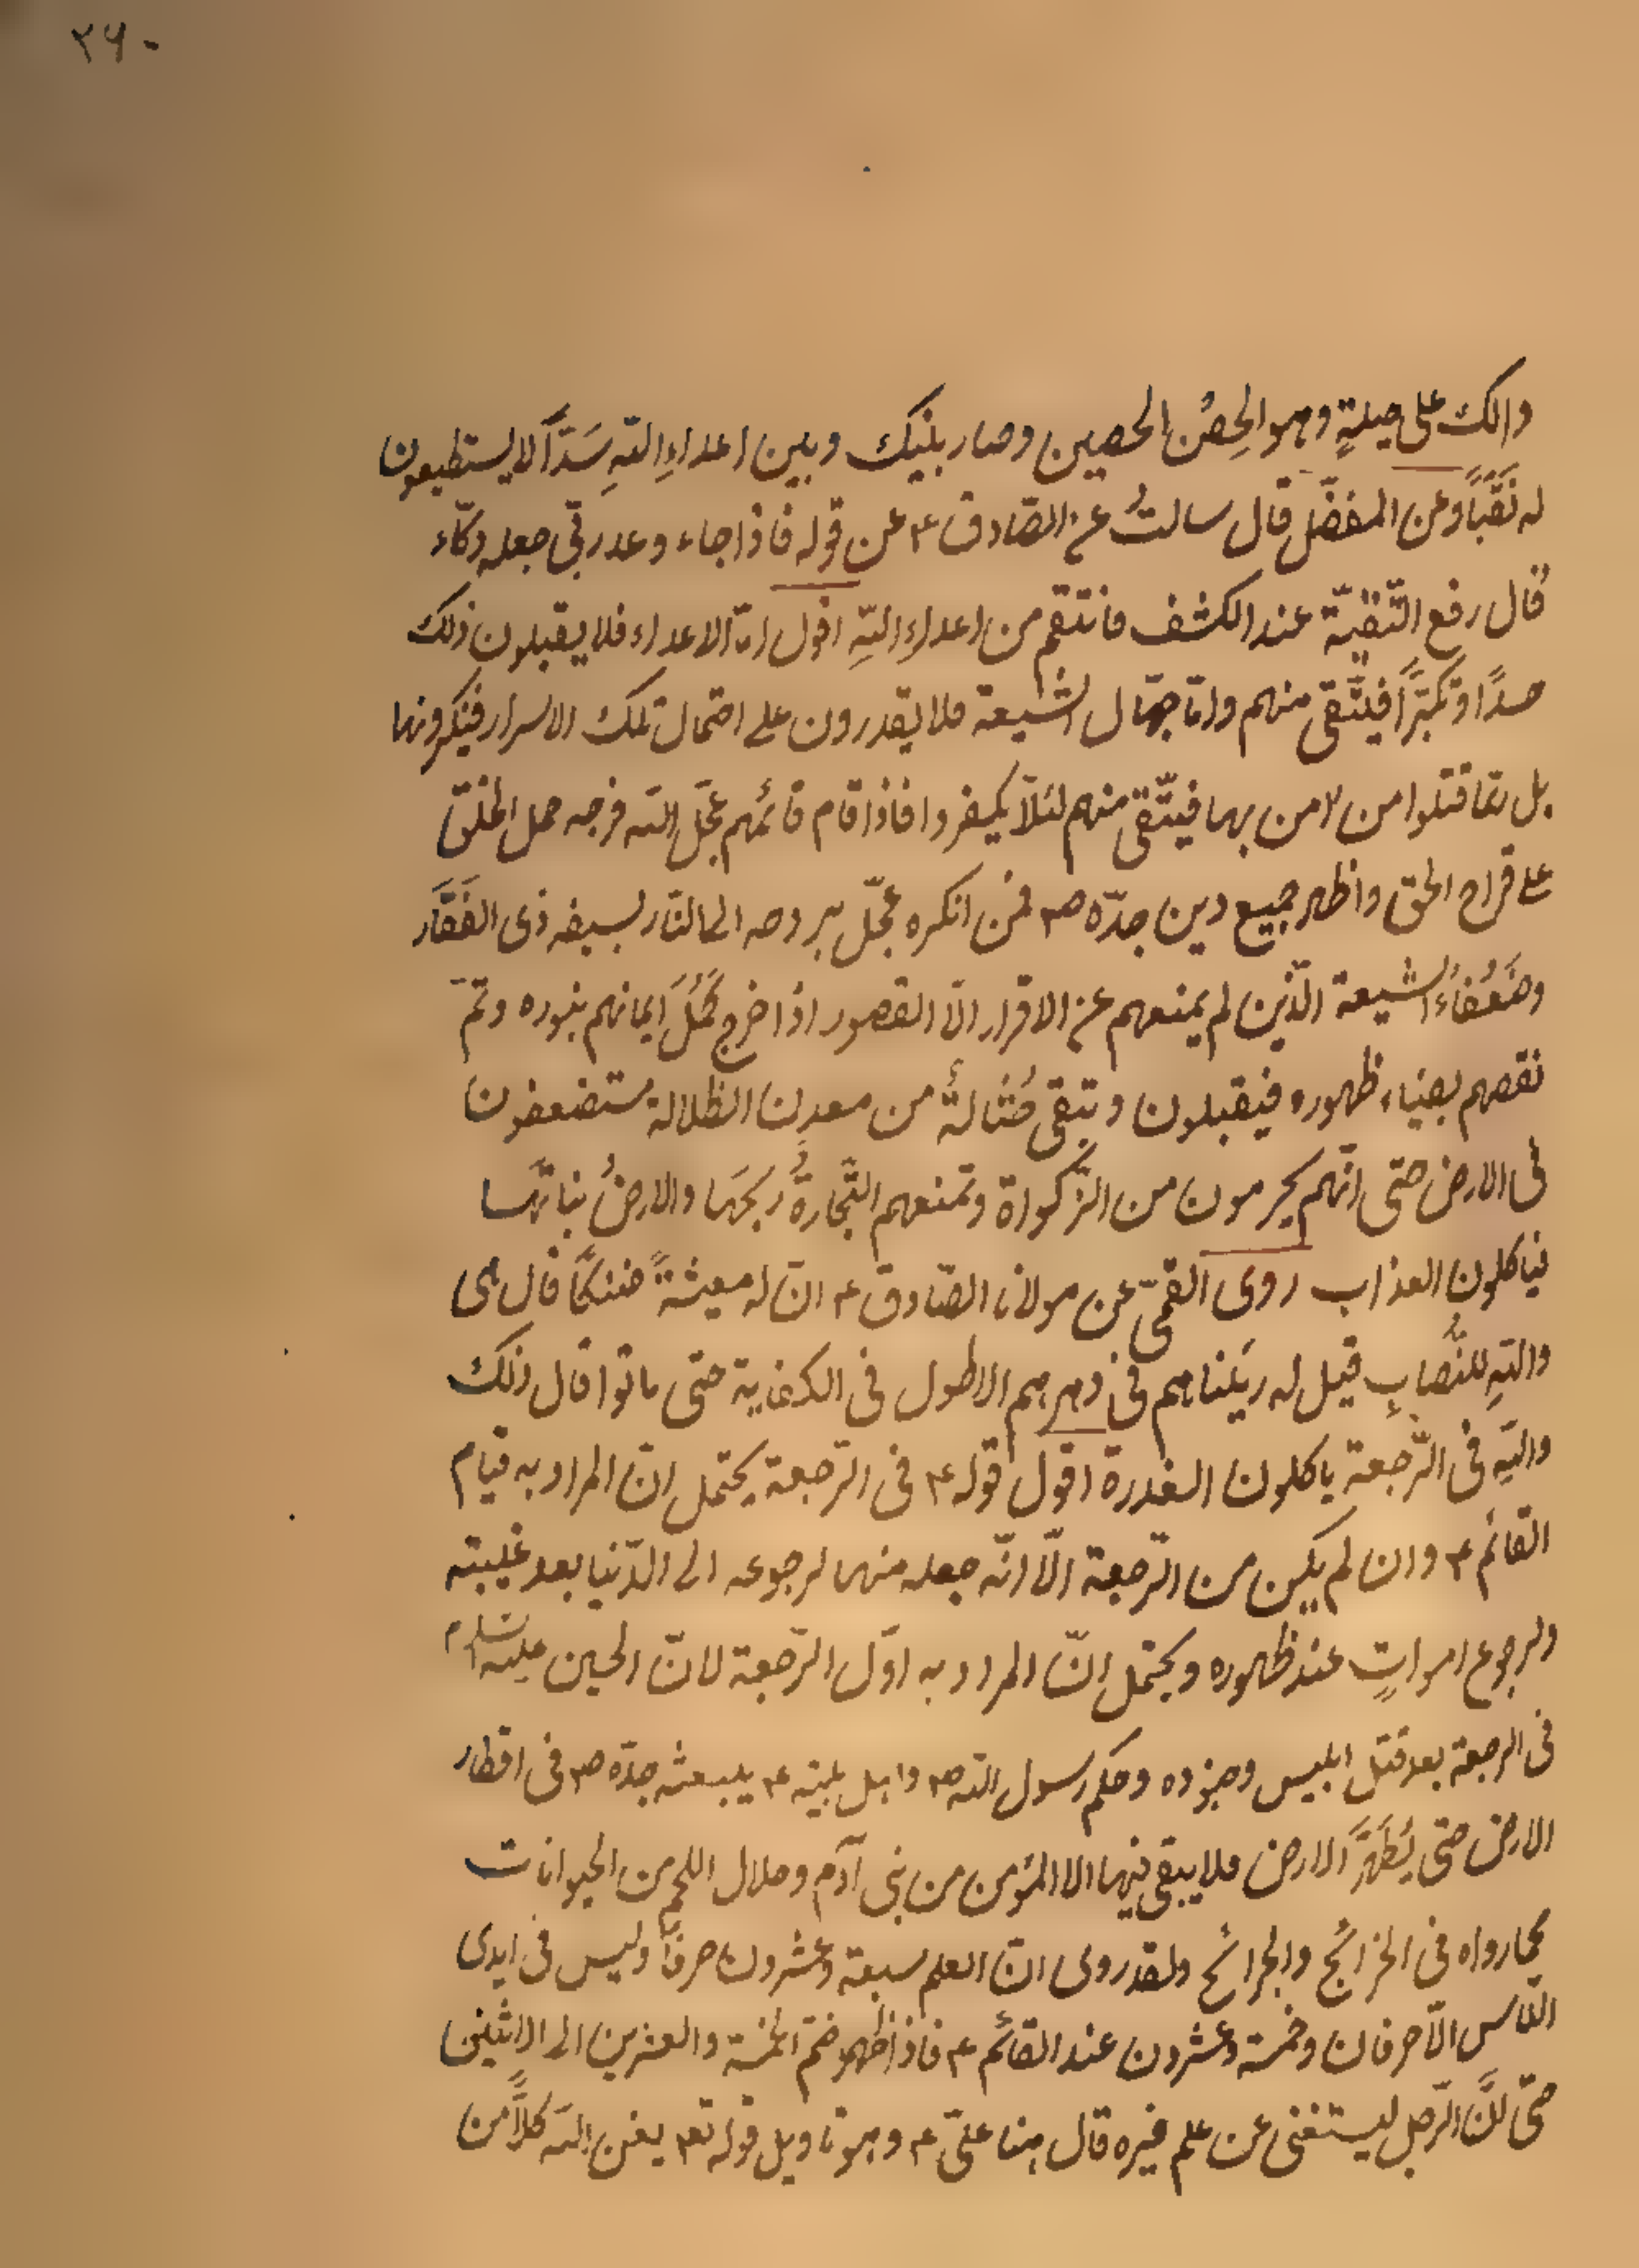 ٢۶٠
والك على حيلةٍ وهو الحِصْن الحصين وصار بينك وبين اعداءِ اللّهِ سَدّاً لا يستطيعون
له نَقَباً وعن المفضّل قال سالتُ عن الصّادق ع عن قوله فاذا جاء وعد ربّي جعله دكّاء
قال رفع التّقيّة عند الكشف فانتقم من اعداءِ اللّهِ اقول امّا الاعداء فلا يقبلون ذلك
حسدًا وتكبّراً فيتّقى منهم وامّا جهّال الشيعة فلا يقدرون على احتمال تلك الاسرار فينكرونها
بل ربّما قتلوا من امن بها فيتّقى منهم لئلّا يكفروا فاذا قام قائمهم عجّل اللّه فرجه حمل الخلق
على قراح الحق واظهر جميع دين جدّه ص فمن انكره عجّل بروحه الى النّار بسيفه ذى الفَقَار
وضُعَفاءُ الشيعة الّذين لم يمنعهم عن الاقرار الّا القصور اذا خرج كَمُلَ ايمانهم بنوره وتمّ
نقصهم بضياء ظهوره فيقبلون وتبقى حُثالةٌ من معدن الظلالة مستضعفون
فى الارض حتى انّهم يحرمون من الزّكواة وتمنعهم التّجارةُ ربحَها والارضُ نباتَها
فياكلون العذاب روى القمّى عن مولانا الصّادق ع انّ له معيشةً ضنكًا قال هى
واللّهِ للنُّصابِ قيل له رئيناهم فى دهرهم الاطول فى الكفاية حتى ماتوا قال ذلك
واللّهِ فى الرّجعة ياكلون العذرة اقول قوله ع فى الرّجعة يحتمل انّ المراد به قيام
القائم ع وان لم يكن من الرّجعة الّا انّه جعله منها لرجوعه الى الدّنيا بعد غيبته
ولرجوع امواتٍ عند ظهوره ويحتمل انّ المراد به اوّل الرّجعة لانّ الحسين عليه السلام
فى الرجعة بعد قتل ابليس وجنوده وحكم رسول اللّه ص واهل بيته ع يبعثه جدّه ص فى اقطار
الارض حتى يُطَهِّرَ الارض فلا يبقى فيها الا المؤمن من بنى آدم وحلال اللحم من الحيوانات
كما رواه فى الخرائج والجرائح ولقد روى انّ العلم سبعة وعشرون حرفاً وليس فى ايدى
النّاس الّا حرفان وخمسة وعشرون عند القائم ع فاذا ظهر ضمّ الخمسة والعشرين الى الاثنين
حتّى انَّ الرّجل ليستغنى عن علم غيره قال هنا علىّ ع وهو تاويل قوله تع يغن اللّه كلاًّ من